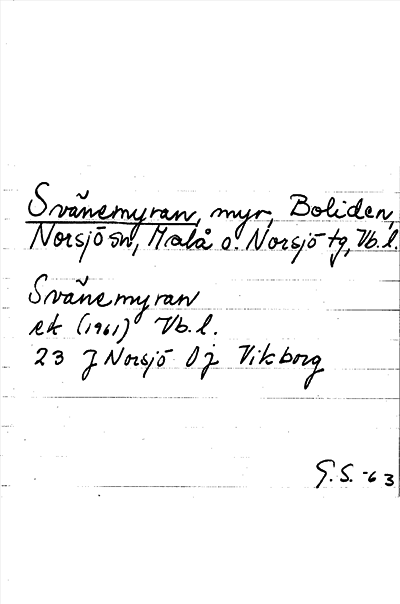 Svänemyran, myr, Boliden,
Norsjö sn, Malå o. Norsjö tg, Vb. l.
Svänemyran
ek (1961) Vb. l.
23 J Norsjö 0j Vikborg
G.S. -63